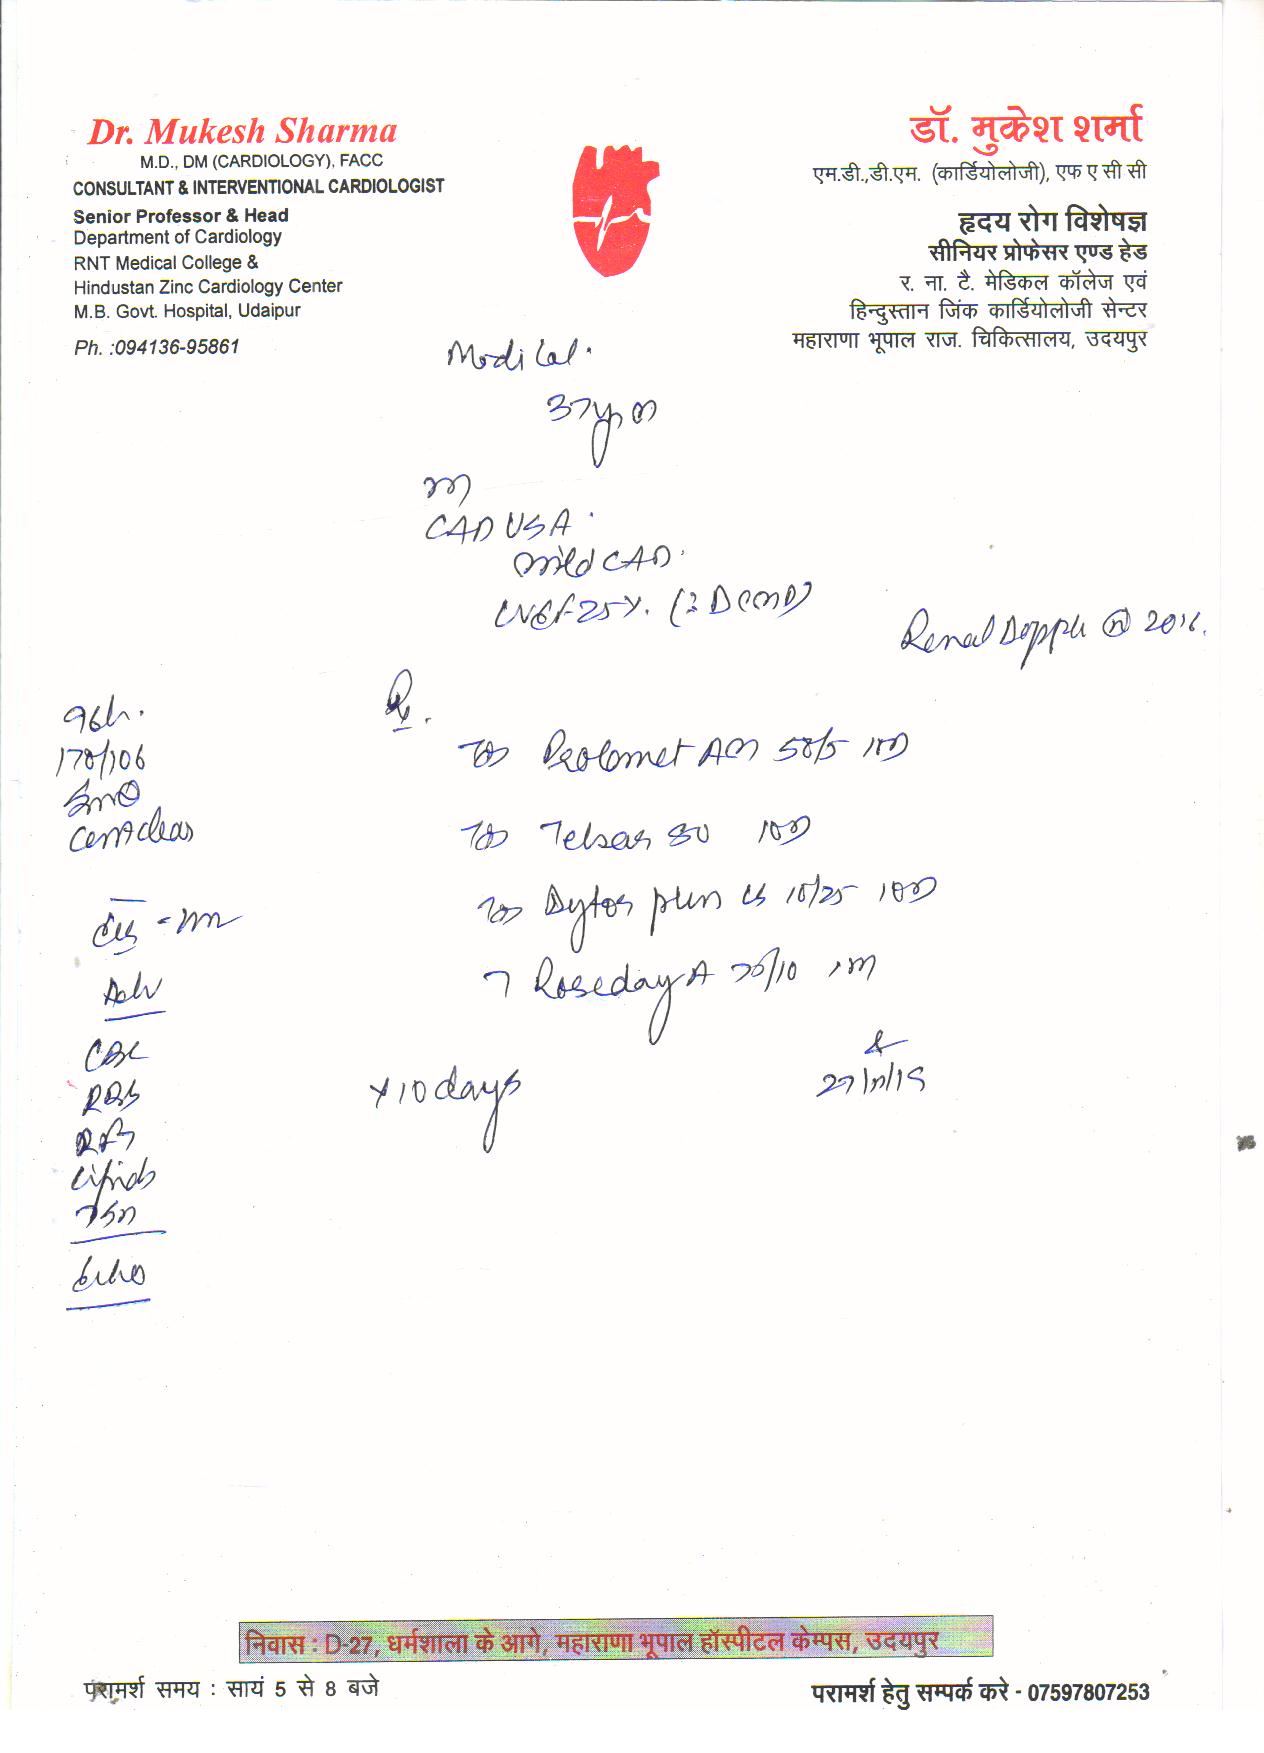 Dr. Mukesh Sharma
M.D., DM (CARDIOLOGY), FACC
CONSULTANT & INTERVENTIONAL CARDIOLOGIST
Senior Professor & Head
Department of Cardiology
RNT Medical College &
Hindustan Zinc Cardiology Center
M.B. Govt. Hospital, Udaipur
Ph. :094136-95861
डॉ. मुकेश शर्मा
एम.डी.,डी.एम. (कार्डियोलोजी), एफ ए सी सी
हृदय रोग विशेषज्ञ
सीनियर प्रोफेसर एण्ड हेड
र. ना. टै. मेडिकल कॉलेज एवं
हिन्दुस्तान जिंक कार्डियोलोजी सेन्टर
महाराणा भूपाल राज. चिकित्सालय, उदयपुर
37yr M
CAD USA
mild CAD
LVEF 25%. (? DCMP)
Renal Doppler 2016.
96/
170/106
Chest clear
Adv
CBC
RBS
RFT
Lipids
TSH
Echo
Rx.
Tab Prolomet AM 50/5 1OD
Tab Telsar 80 1OD
Tab Dytor plus LS 10/25 1OD
T Roseday A 20/10
x 10 days
27/11/19
निवास : D-27, धर्मशाला के आगे, महाराणा भूपाल हॉस्पीटल केम्पस, उदयपुर
परामर्श समय : सायं 5 से 8 बजे
परामर्श हेतु सम्पर्क करे - 07597807253